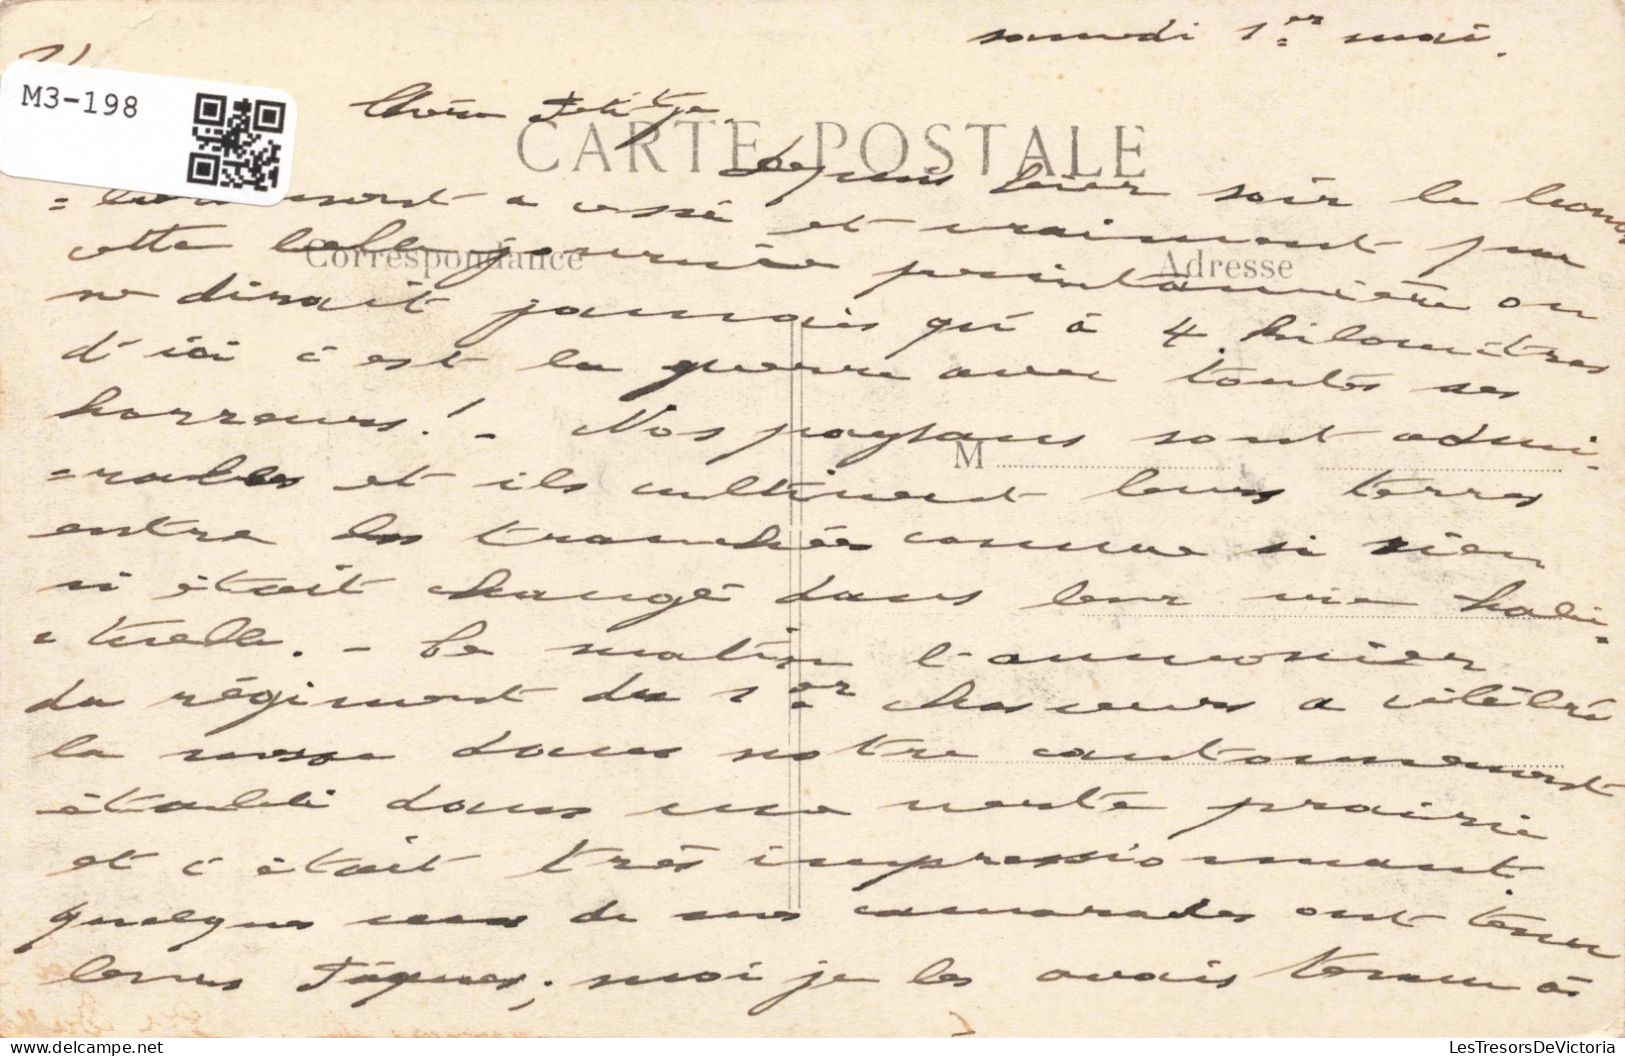 samedi 1=er mai.
M3-198
Chère
CARTE POSTALE
depuis hier soir le bom
= bardement a cessé et vraiment par
Correspondance
Adresse
cette belle journée printannière on
ne dirait jamais qu'à 4 kilomètres
d'ici c'est la guerre avec toutes ses
horreurs! - Nos paysans sont admi-
M
= rables et ils cultivent leurs terres
entre les tranchées comme si rien
n'était changé dans leur vie habi-
= tuelle. - Ce matin l'aumonier
du régiment du 1=er chasseurs a célébré
la messe dans notre cantonnement
établi dans une verte prairie
et c'était très impressionnant.
quelques uns de mes camarades ont tenu
leurs Pâques; moi je les avais tenu à
LesTresorsDeVictoria